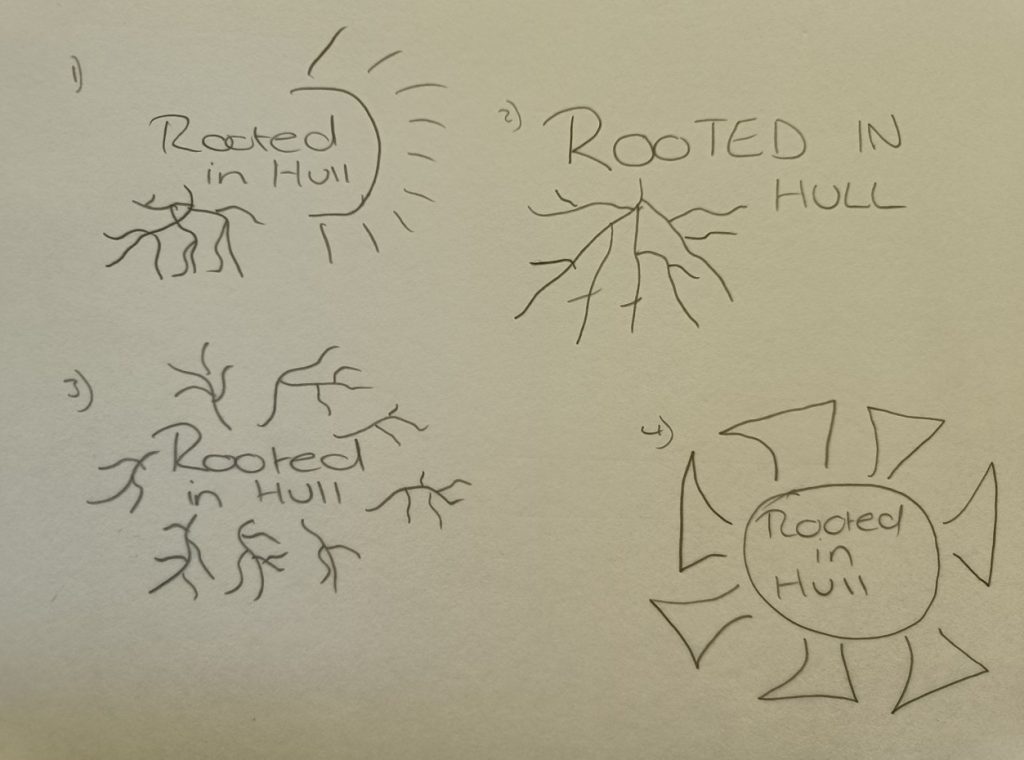 1)
Rooted
in Hull
2)
ROOTED IN
HULL
3)
Rooted
in Hull
4)
Rooted
in
Hull